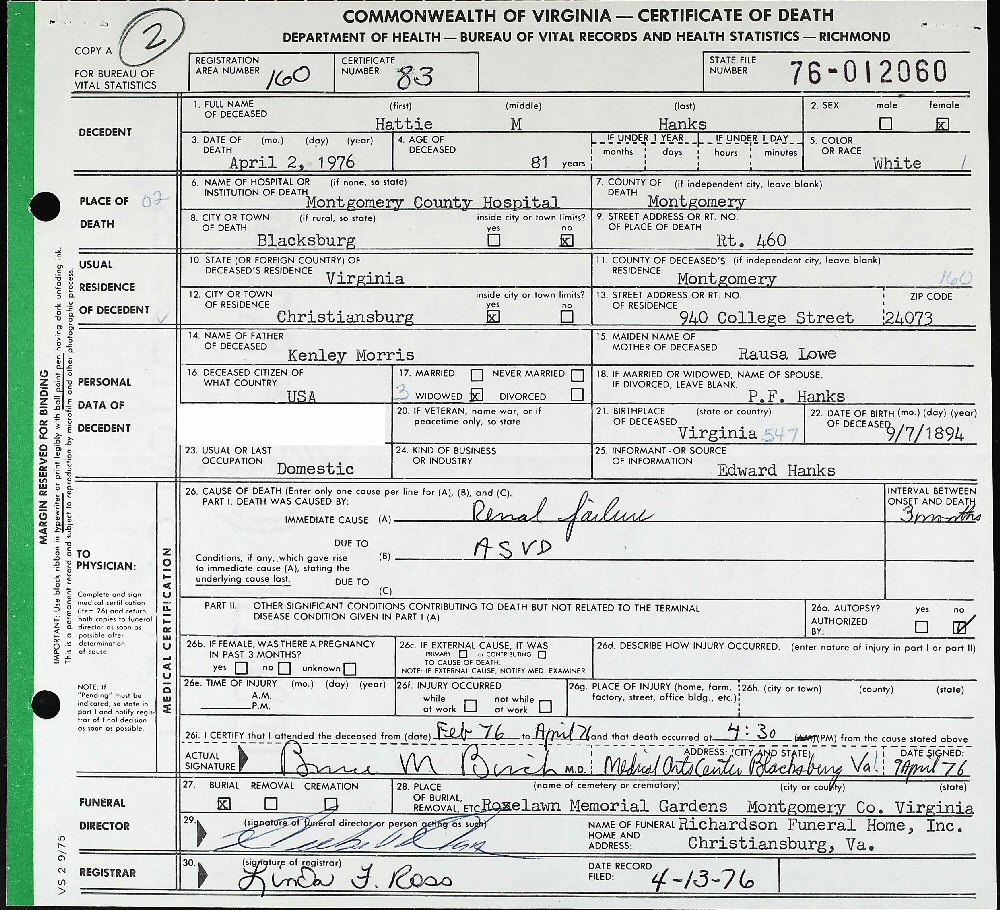 COMMONWEALTH OF VIRGINIA — CERTIFICATE OF DEATH
DEPARTMENT OF HEALTH — BUREAU OF VITAL RECORDS AND HEALTH STATISTICS — RICHMOND
COPY A 2
FOR BUREAU OF VITAL STATISTICS
REGISTRATION AREA NUMBER 160
CERTIFICATE NUMBER 83
STATE FILE NUMBER 76-012060
DECEDENT
1. FULL NAME OF DECEASED (first) (middle) (last)
Hattie M Hanks
2. SEX male female X
3. DATE OF DEATH (mo.) (day) (year)
April 2, 1976
4. AGE OF DECEASED 81 years
IF UNDER 1 YEAR months days
IF UNDER 1 DAY hours minutes
5. COLOR OR RACE White /
PLACE OF DEATH 02
6. NAME OF HOSPITAL OR INSTITUTION OF DEATH (if none, so state)
Montgomery County Hospital
7. COUNTY OF DEATH (if independent city, leave blank)
Montgomery
8. CITY OR TOWN OF DEATH (if rural, so state) inside city or town limits? yes no X
Blacksburg
9. STREET ADDRESS OR RT. NO. OF PLACE OF DEATH
Rt. 460
USUAL RESIDENCE OF DECEDENT
10. STATE (OR FOREIGN COUNTRY) OF DECEASED'S RESIDENCE
Virginia
11. COUNTY OF DECEASED'S RESIDENCE (if independent city, leave blank)
Montgomery 160
12. CITY OR TOWN OF RESIDENCE inside city or town limits? yes X no
Christiansburg
13. STREET ADDRESS OR RT. NO. OF RESIDENCE ZIP CODE
940 College Street 24073
PERSONAL DATA OF DECEDENT
14. NAME OF FATHER OF DECEASED
Kenley Morris
15. MAIDEN NAME OF MOTHER OF DECEASED
Rausa Lowe
16. DECEASED CITIZEN OF WHAT COUNTRY
USA
17. MARRIED NEVER MARRIED
3 WIDOWED X DIVORCED
18. IF MARRIED OR WIDOWED, NAME OF SPOUSE. IF DIVORCED, LEAVE BLANK.
P.F. Hanks
20. IF VETERAN, name war, or if peacetime only, so state
21. BIRTHPLACE OF DECEASED (state or country)
Virginia 547
22. DATE OF BIRTH (mo.) (day) (year) OF DECEASED
9/7/1894
23. USUAL OR LAST OCCUPATION
Domestic
24. KIND OF BUSINESS OR INDUSTRY
25. INFORMANT - OR SOURCE OF INFORMATION
Edward Hanks
MARGIN RESERVED FOR BINDING
IMPORTANT: Use black ribbon in typewriter or print legibly with ball point pen having dark unfading ink.
This is a permanent record and subject to reproduction by microfilm and other photographic process.
TO PHYSICIAN:
Complete and sign medical certification (item 26) and return both copies to funeral director as soon as possible after determination of cause.
NOTE: If "Pending" must be indicated, so state in part I and notify registrar of final decision as soon as possible.
MEDICAL CERTIFICATION
26. CAUSE OF DEATH (Enter only one cause per line for (A), (B), and (C).
PART I. DEATH WAS CAUSED BY:
INTERVAL BETWEEN ONSET AND DEATH
IMMEDIATE CAUSE (A) Renal failure 3 months
DUE TO
Conditions, if any, which gave rise to immediate cause (A), stating the underlying cause last.
(B) ASVD
DUE TO
(C)
PART II. OTHER SIGNIFICANT CONDITIONS CONTRIBUTING TO DEATH BUT NOT RELATED TO THE TERMINAL DISEASE CONDITION GIVEN IN PART I (A)
26a. AUTOPSY? yes no
AUTHORIZED BY:
26b. IF FEMALE, WAS THERE A PREGNANCY IN PAST 3 MONTHS?
yes no unknown
26c. IF EXTERNAL CAUSE, IT WAS
PRIMARY or CONTRIBUTING
TO CAUSE OF DEATH.
NOTE: IF EXTERNAL CAUSE, NOTIFY MED. EXAMINER
26d. DESCRIBE HOW INJURY OCCURRED. (enter nature of injury in part I or part II)
26e. TIME OF INJURY (mo.) (day) (year)
A.M.
P.M.
26f. INJURY OCCURRED
while at work not while at work
26g. PLACE OF INJURY (home, farm, factory, street, office bldg., etc.)
26h. (city or town) (county) (state)
26i. I CERTIFY that I attended the deceased from (date) Feb 76 to April 76 and that death occurred at 4:30 (PM) from the cause stated above
ACTUAL SIGNATURE Bruce M Birch M.D.
ADDRESS: (CITY AND STATE)
Medical Arts Center Blacksburg Va.
DATE SIGNED:
9 April 76
FUNERAL DIRECTOR
27. BURIAL X REMOVAL CREMATION
28. PLACE OF BURIAL, REMOVAL, ETC. (name of cemetery or crematory) (city or county) (state)
Roselawn Memorial Gardens Montgomery Co. Virginia
29. (signature of funeral director or person acting as such)
NAME OF FUNERAL HOME AND ADDRESS:
Richardson Funeral Home, Inc.
Christiansburg, Va.
REGISTRAR
30. (signature of registrar)
Linda F. Ross
DATE RECORD FILED: 4-13-76
VS 2 9/75